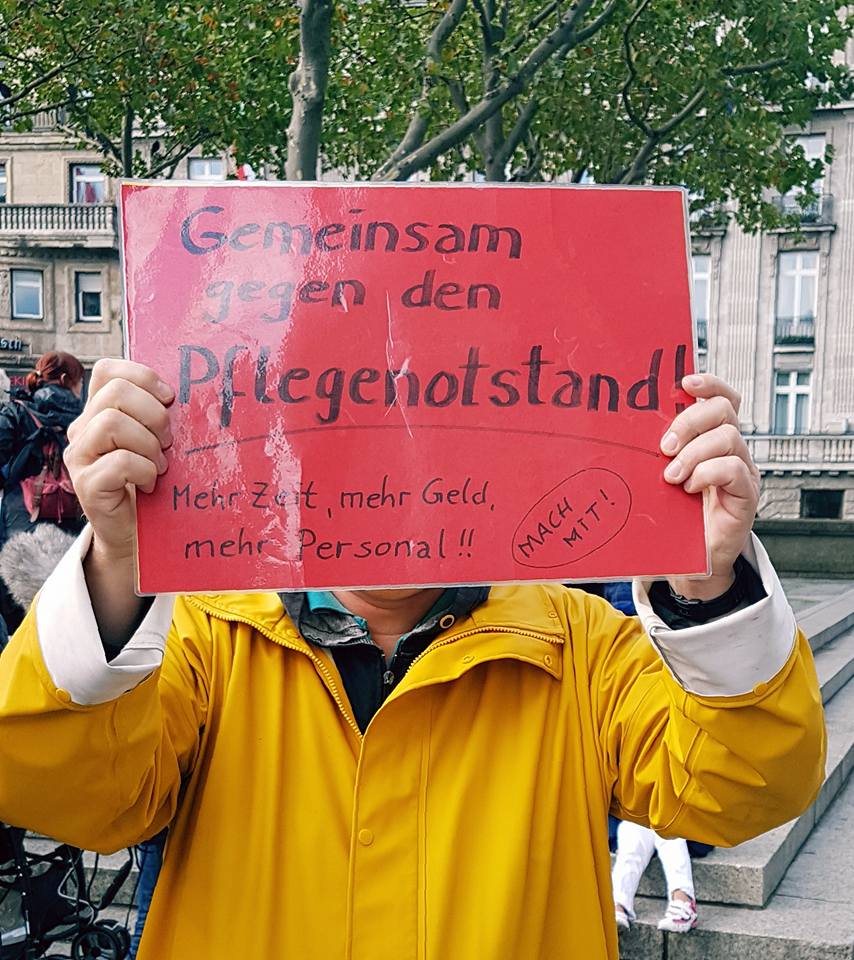 Gemeinsam
gegen den
Pflegenotstand!
Mehr Zeit, mehr Geld,
mehr Personal!!
MACH
MIT!